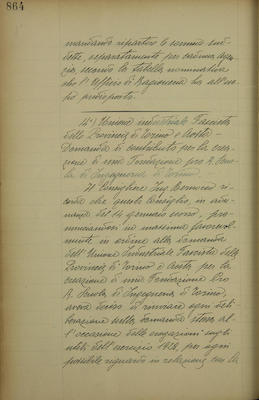 864
mandando ripartire le somme sud-
dette, separatamente per ciascun
secondo la tabella nominativa
che l'Ufficio di Ragioneria ha all'uo-
po predisposta.
4°) Unione industriale Fascista
delle Provincie di Torino e Aosta -
Domanda di contributo per la crea-
zione di una Fondazione pro R. Scuo-
la di Ingegneria di Torino.
Il Consigliere Ing. ri-
corda che questo Consiglio, in adu-
nanza del 14 gennaio scorso, pro-
nunciandosi in massima favorevol-
mente in ordine alla domanda
dell'Unione Industriale Fascista delle
Provincie di Torino e Aosta per la
creazione di una Fondazione Pro
R. Scuola di Ingegneria di Torino,
aveva deciso di rinviare ogni deli-
berazione sulla domanda stessa al-
l'occasione delle erogazioni sugli
utili dell'esercizio 1928, per ogni
possibile riguardo in relazione con la